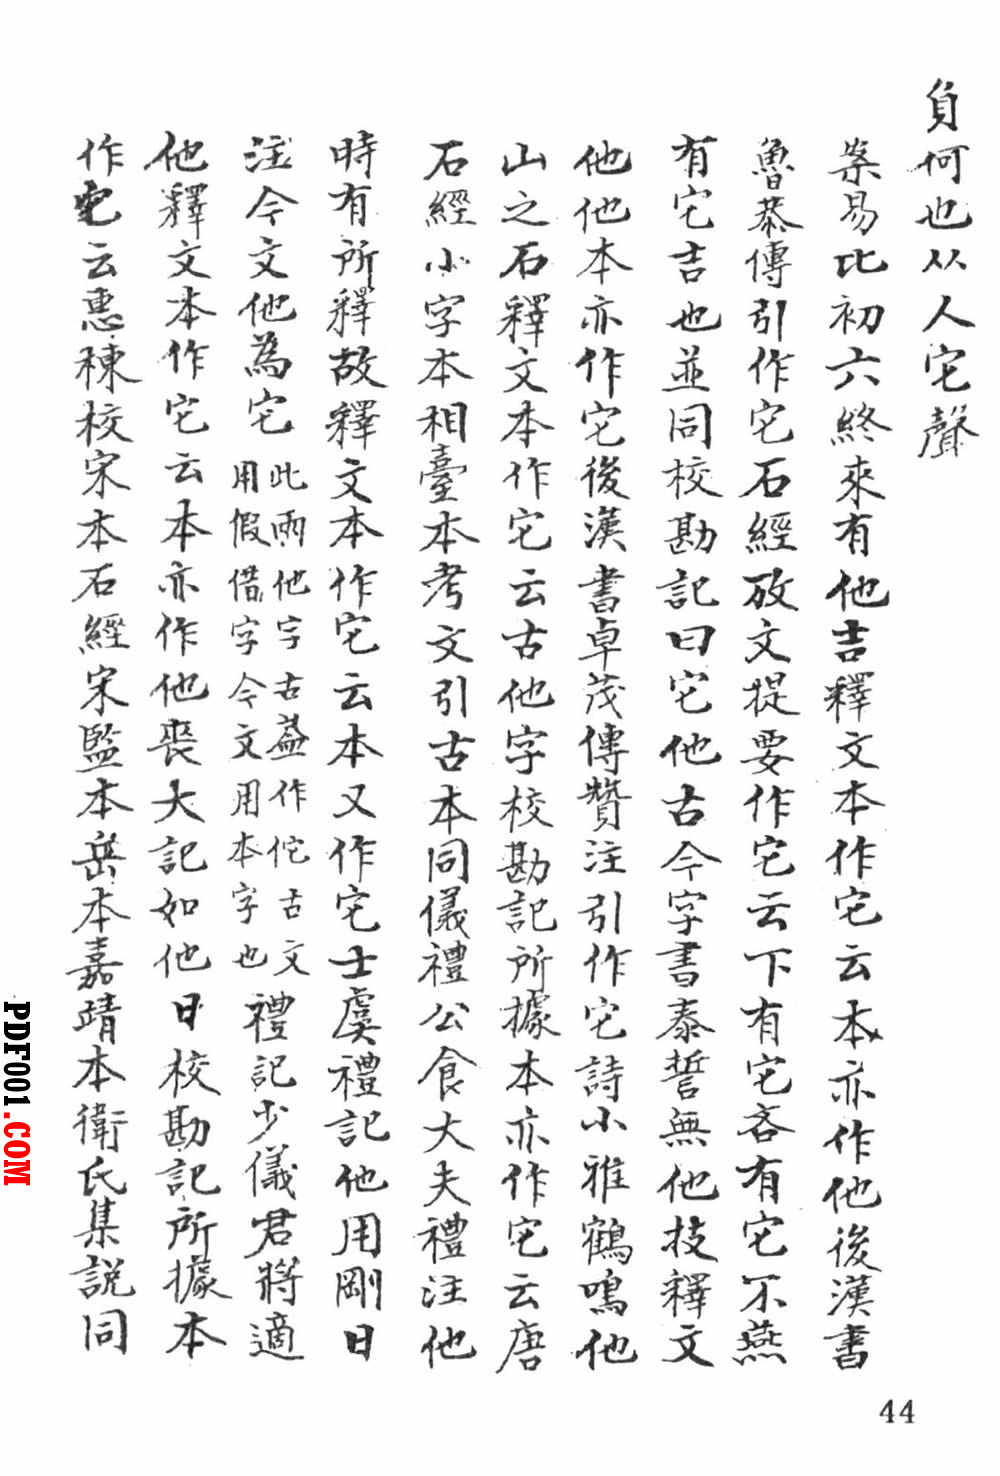 負何也从人宅聲
案易比初六終來有他吉釋文本作宅云本亦作他後漢書
魯恭傳引作宅石經攷文提要作宅云下有宅吝有宅不燕
有宅吉也並同校勘記曰宅他古今字書泰誓無他技釋文
他他本亦作宅後漢書卓茂傳贊注引作宅詩小雅鶴鳴他
山之石釋文本作宅云古他字校勘記所據本亦作宅云唐
石經小字本相臺本考文引古本同儀禮公食大夫禮注他
時有所釋故釋文本作宅云本又作宅士虞禮記他用剛日
注今文他為宅此兩他字古蓋作佗古文用假借字今文用本字也禮記少儀君將適
他釋文本作宅云本亦作他喪大記如他日校勘記所據本
作宅云惠棟校宋本石經宋監本岳本嘉靖本衛氏集說同
44
PDF001.COM